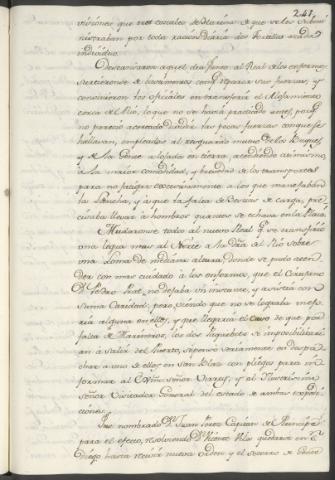 241.
visiones que tres costales de Harina que se les submi-
nistraban por toda racion diaria dos Tortillas a cada
individuo.
Descansaron aquel dia Junto al Real de los enfermos
surtieronse de lavatorios con q. reparar sus fuerzas, y
convinieron los oficiales en transferir el Alojamiento
cerca del Rio, lo que no se havia practicado antes, porq.
no pareció acertado dividir las pocas fuerzas con que se
hallavan, empleados al resguardo mutuo de los Buques,
y de la Gente alojada en tierra, atendiendo asimismo
a la maior comodidad, y brevedad de los transportes
para no fatigar excesivamente a los que manejaban
la Lancha, y a que la falta de Bestias de carga, pre-
cisaba llevar a hombros quanto se echava en la Playa.
Mudaronse todos al nuevo Real q. se transfirió
una legua mas al Norte a la dra. del Rio sobre
una Loma de mediana altura, donde se pudo aten-
der con mas cuidado a los enfermos, que el Cirujano
D.n Pedro Prat, no dejaba un instante, y asistia con
suma Caridad; pero viendo que no se lograba mejo-
ria alguna en ellos, y que llegaria el caso de que por
falta de Marineros, los dos Paquebotes se imposibilitarian
a salir del Puerto, se pensó seriamente en despa-
char a uno de ellos en San Blas con pliegos para in-
formar al Exmo. Señor Virrey, y al Illustrisimo
señor Visitador General del estado de ambas expedi-
ciones.
Fue nombrado D.n Juan Perez Capitan del Principe
para el efecto, resolviendo D.n Vicente Vila quedarse en S.n
Diego hasta recivir nueva orden y el socorro de Gente